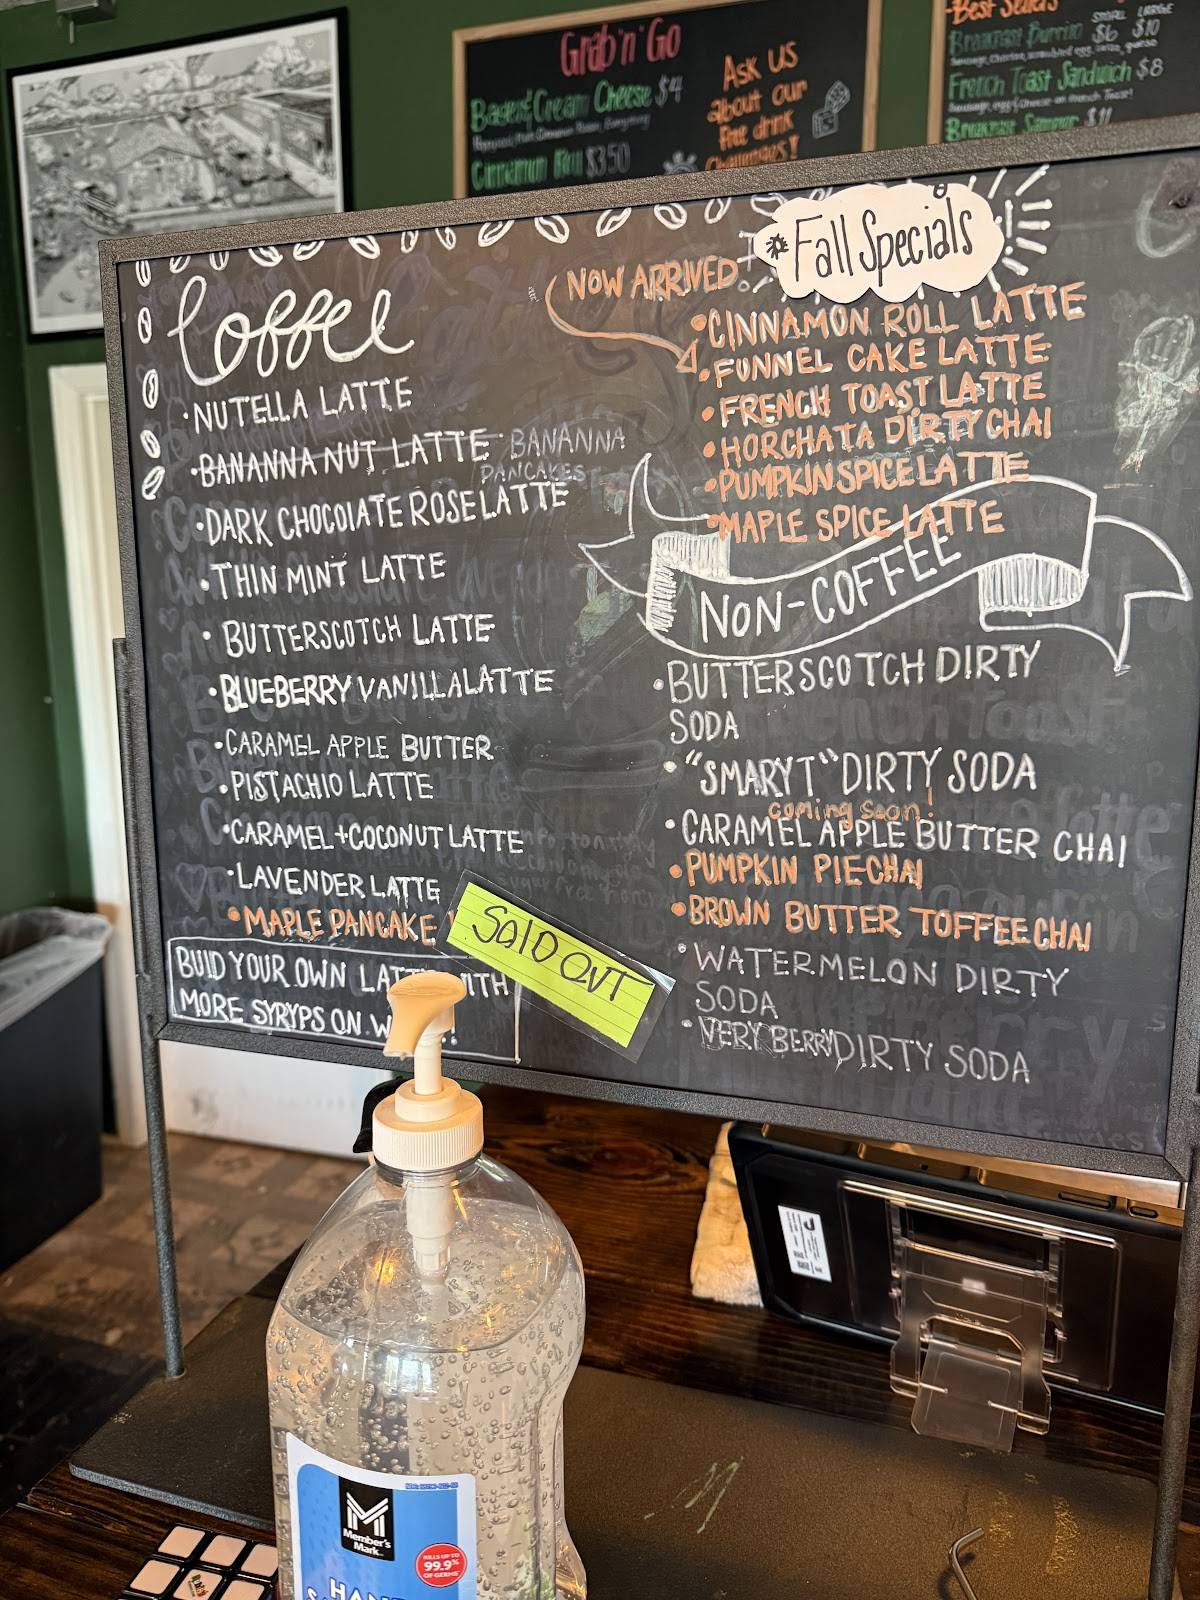 Grab 'n' Go
Bagel & Cream Cheese $4
Cinnamon Roll $3.50
ASK US
about our
free drink
Challenges!
-Best Sellers
SMALL LARGE
Breakfast Burrito $6 $10
French Toast Sandwich $8
Breakfast Sampler $11
Coffee
•NUTELLA LATTE
•BANANNA NUT LATTE BANANNA
PANCAKES
•DARK CHOCOLATE ROSE LATTE
•THIN MINT LATTE
•BUTTERSCOTCH LATTE
•BLUEBERRY VANILLA LATTE
•CARAMEL APPLE BUTTER
•PISTACHIO LATTE
•CARAMEL+COCONUT LATTE
•LAVENDER LATTE
•MAPLE PANCAKE
BUILD YOUR OWN LATTE WITH
MORE SYRYPS ON
SOLD OUT
NOW ARRIVED
Fall Specials
•CINNAMON ROLL LATTE
•FUNNEL CAKE LATTE
•FRENCH TOAST LATTE
•HORCHATA DIRTY CHAI
•PUMPKIN SPICE LATTE
•MAPLE SPICE LATTE
NON-COFFEE
•BUTTERSCOTCH DIRTY
SODA
•"SMARYT" DIRTY SODA
coming soon!
•CARAMEL APPLE BUTTER CHAI
•PUMPKIN PIE CHAI
•BROWN BUTTER TOFFEE CHAI
•WATERMELON DIRTY
SODA
•VERY BERRY DIRTY SODA
Member's
Mark
KILLS UP TO
99.9%
OF GERMS
HAND